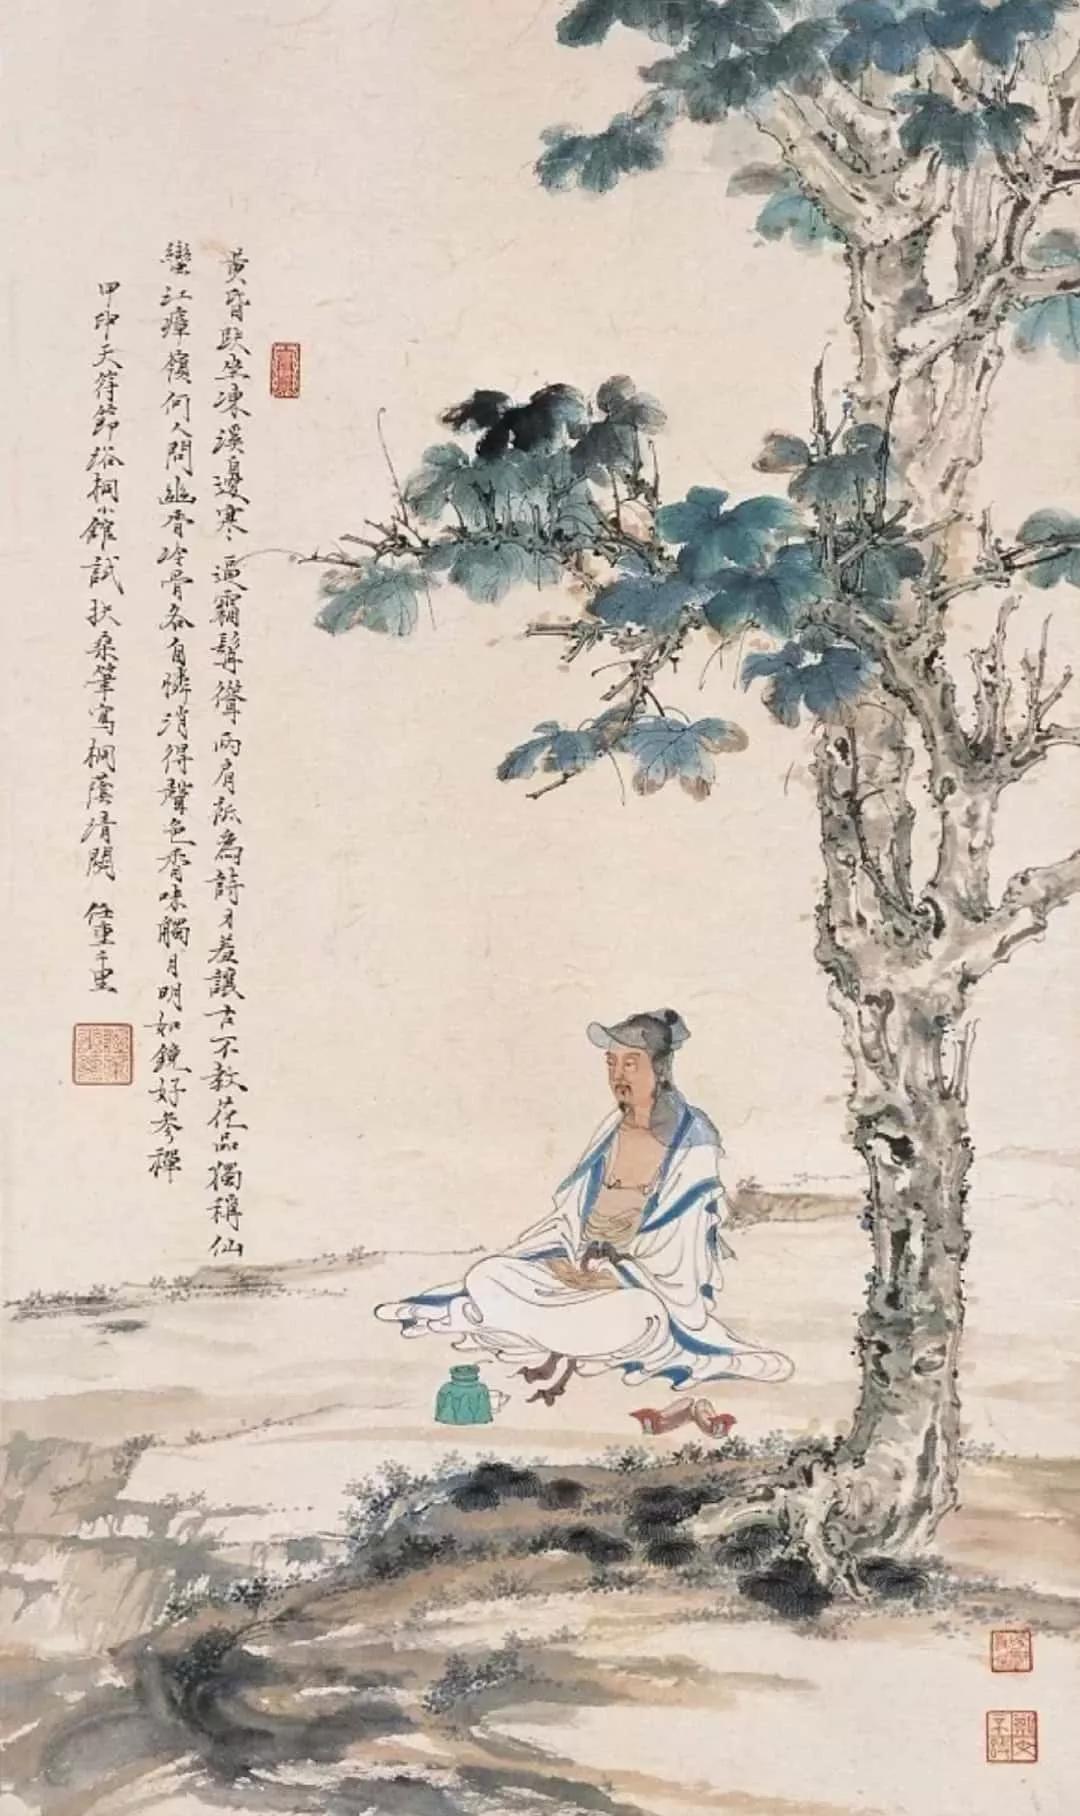 黄昏趺坐凍溪邊寒逼霜髯聳兩肩祇為詩才羞讓古不教花品獨稱仙
蠻江瘴嶺何人問幽香冷骨各自憐消得聲色香味觸月明如鏡好參禪
甲申天符節浴桐小館試扶桑筆寫桐蔭清閑 任重千里